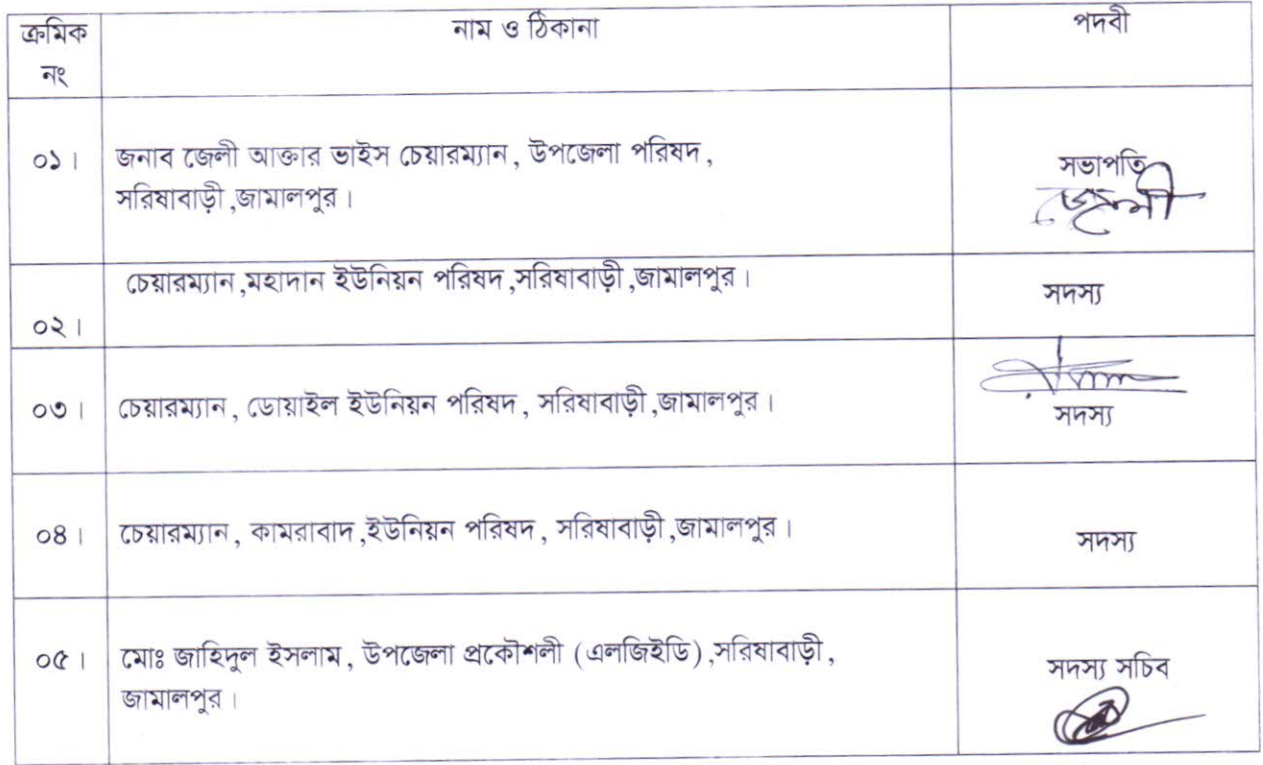 ক্রমিক নং নাম ও ঠিকানা পদবী
০১। জনাব জেলী আক্তার ভাইস চেয়ারম্যান, উপজেলা পরিষদ,
সরিষাবাড়ী,জামালপুর।
সভাপতি
জেলী
চেয়ারম্যান,মহাদান ইউনিয়ন পরিষদ,সরিষাবাড়ী,জামালপুর।
০২।
সদস্য
০৩। চেয়ারম্যান, ডোয়াইল ইউনিয়ন পরিষদ, সরিষাবাড়ী,জামালপুর।
সদস্য
০৪। চেয়ারম্যান, কামরাবাদ,ইউনিয়ন পরিষদ, সরিষাবাড়ী,জামালপুর। সদস্য
০৫। মোঃ জাহিদুল ইসলাম, উপজেলা প্রকৌশলী (এলজিইডি),সরিষাবাড়ী,
জামালপুর।
সদস্য সচিব